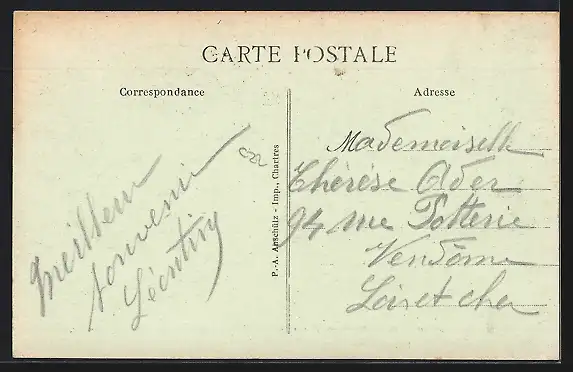 CARTE POSTALE
Correspondance
Adresse
Meilleur
souvenir
Léontine
P.-A. Anschütz - Imp., Chartres
Mademoiselle
Thérèse Oder
94 rue Potterie
Vendôme
Loir et cher